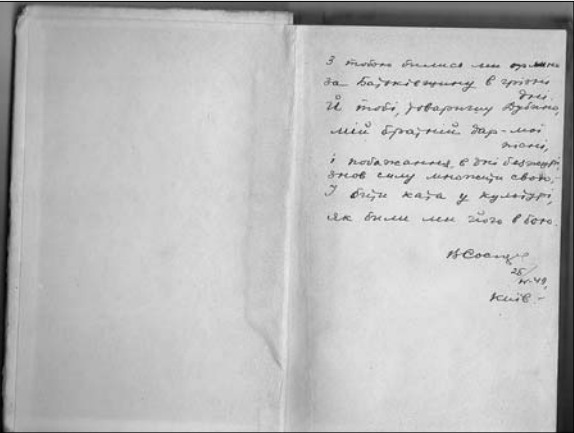 З тобою билися ми
за Батьківщину в грізні
дні.
Й тобі, товаришу Дубино,
мій братній дар – мої
пісні,
і побажання, в дні безхмурі,
знов силу множити свою, –
І бити ката у культурі,
як били ми його в бою.
ВСосюра
25/
49,
Київ. –